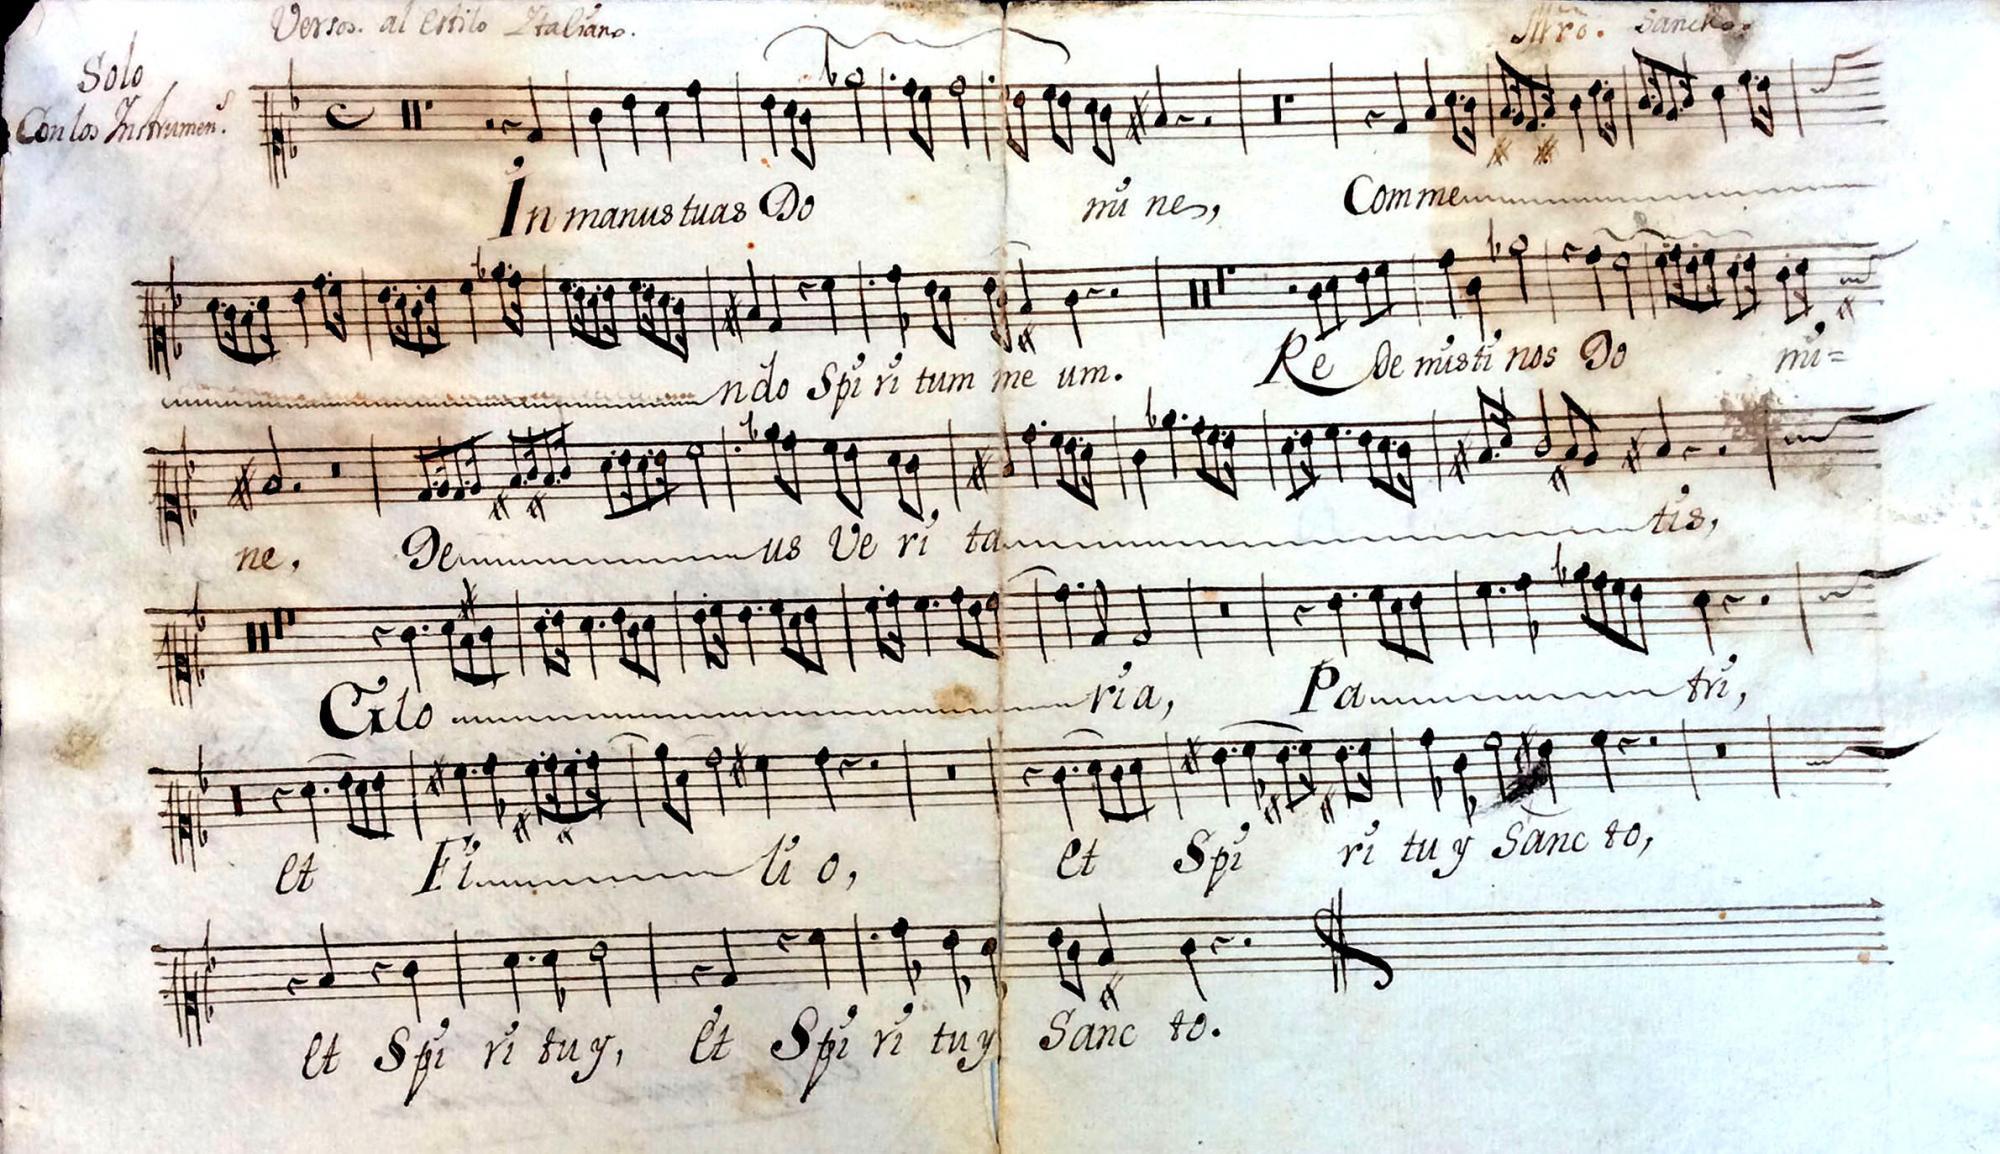 Versos. al Estilo Italiano.
Mro. Sancho.
Solo
Con los Instrumen.s
In manus tuas Do mi ne, Comme
ndo Spi ri tum me um. Re de misti nos Do mi=
ne, De us Ve ri ta tis,
Glo ria, Pa tri,
et Fi li o, et Spi ri tu y Sanc to,
et Spi ri tu y, et Spi ri tu y Sanc to.